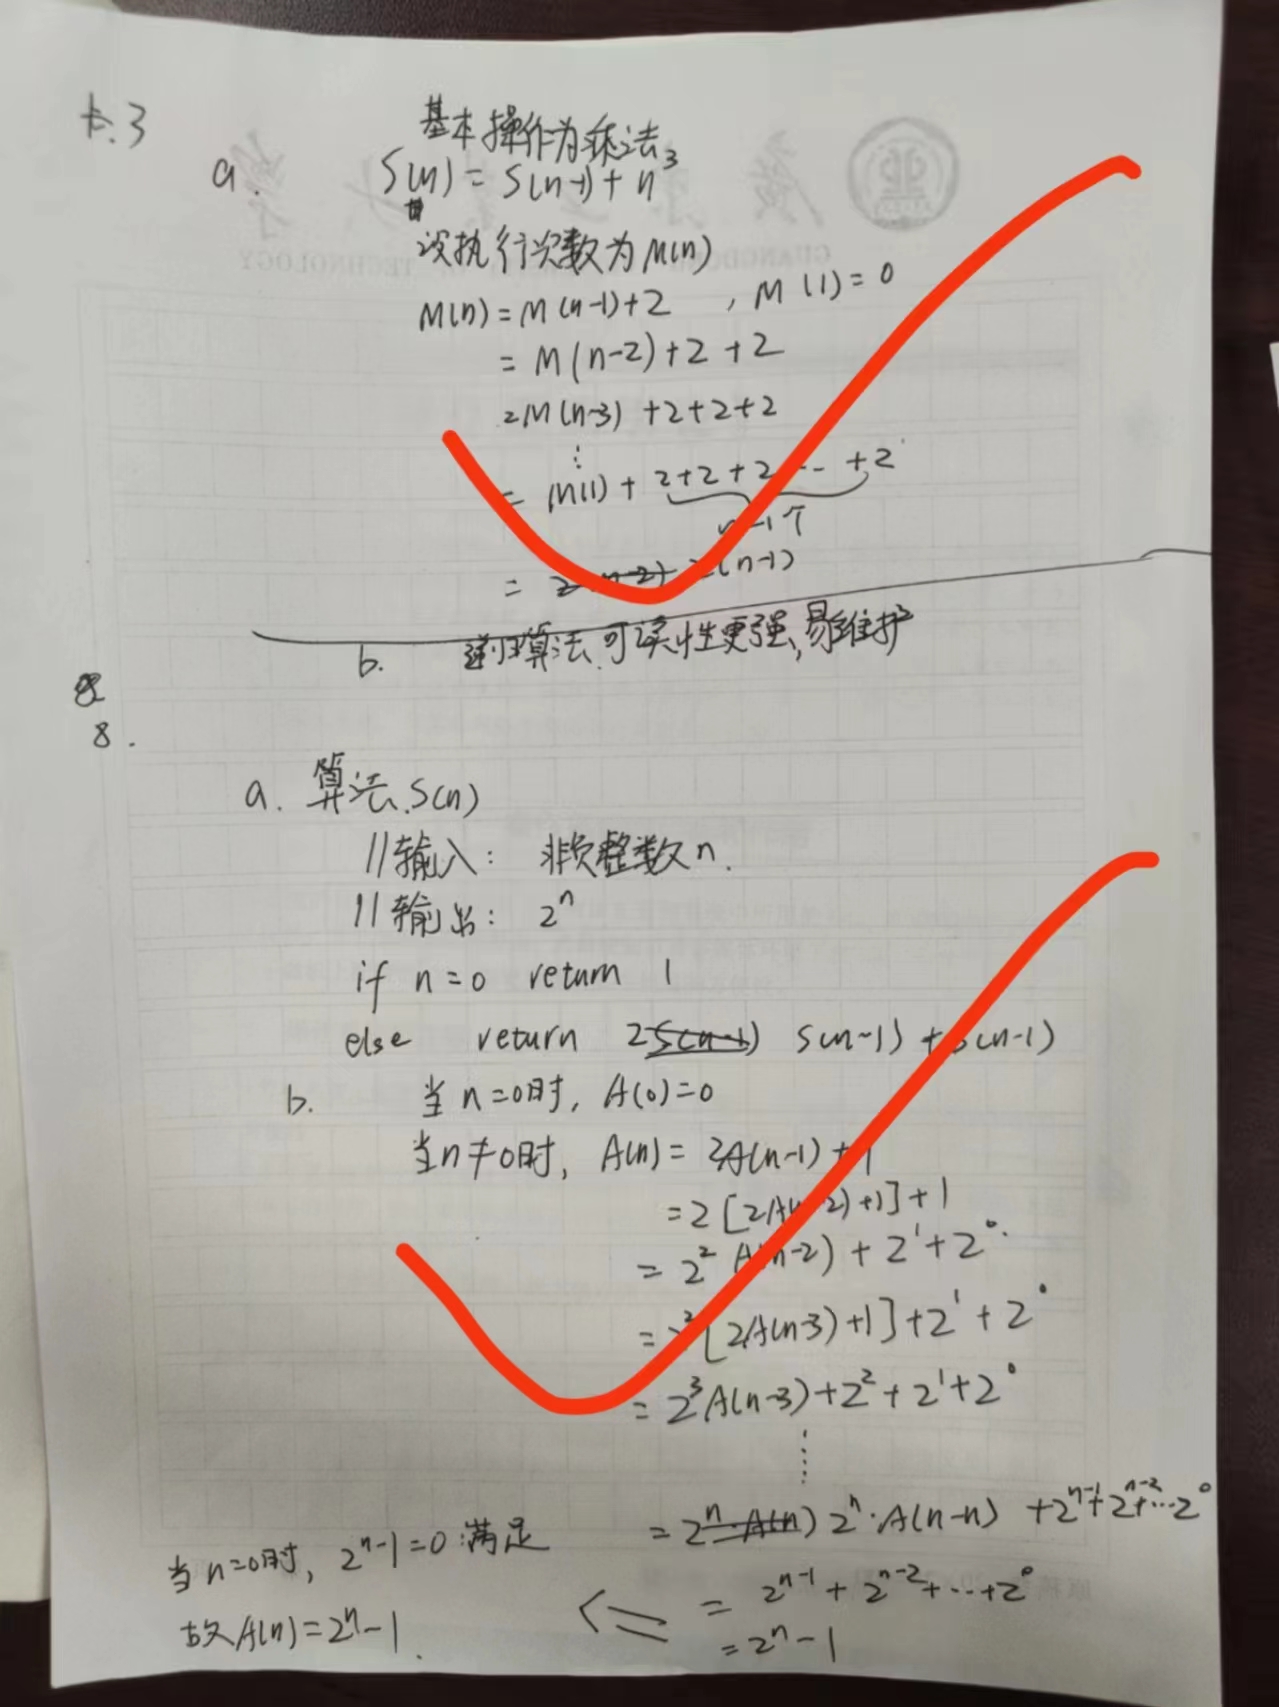 3
基本操作为乘法
a. S(n) = S(n-1) + n³
设执行次数为M(n)
M(n) = M(n-1)+2 , M(1) = 0
= M(n-2)+2+2
=M(n-3) +2+2+2
⋮
= M(1) + 2+2+2 -- +2
n-1个
= 2(n-1)
b. 递归算法.可读性更强,易维护
8.
a. 算法.S(n)
//输入: 非负整数n.
//输出: 2ⁿ
if n=0 return 1
else return S(n-1) + S(n-1)
b. 当n=0时, A(0)=0
当n≠0时, A(n) = 2A(n-1)+1
=2[2A(n-2)+1]+1
= 2² A(n-2) + 2¹+2⁰.
= 2²[2A(n-3)+1]+2¹+2⁰
= 2³A(n-3)+2²+2¹+2⁰
⋮
= 2ⁿ·A(n-n) +2ⁿ⁻¹+2ⁿ⁻²+...2⁰
= 2ⁿ⁻¹+2ⁿ⁻²+...+2⁰
=2ⁿ-1
当n=0时, 2ⁿ-1=0 满足
故A(n)=2ⁿ-1.